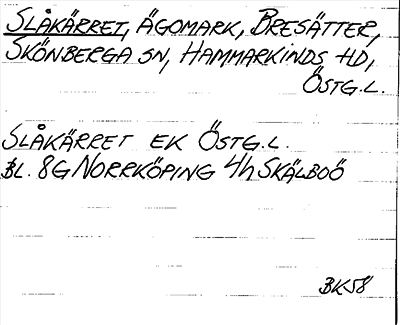 SLÅKÄRRET, ÄGOMARK, BRESÄTTER,
SKÖNBERGA SN, HAMMARKINDS HD,
ÖSTG.L.
SLÅKÄRRET EK ÖSTG.L.
BL. 8G NORRKÖPING 4h SKÄLBOÖ
BK58